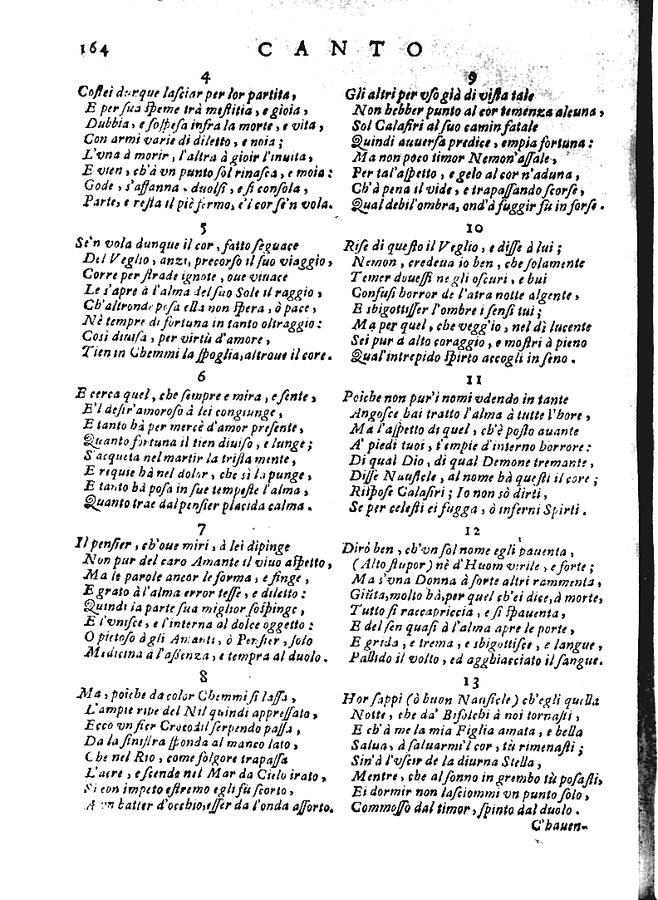 164
CANTO
4
Costei dunque lasciar per lor partita,
E per sua speme trà mestitia, e gioia,
Dubbia, e sospesa infra la morte, e vita,
Con armi varie di diletto, e noia;
L'vna à morir, l'altra à gioir l'inuita,
E vien, ch'à vn punto sol rinasca, e moia:
Gode, s'affanna, duolsi, e si consola,
Parte, e resta il piè fermo, e'l cor se'n vola.
5
Se'n vola dunque il cor, fatto seguace
Del Veglio, anzi, precorso il suo viaggio,
Corre per strade ignote, oue viuace
Le s'apre à l'alma del suo Sole il raggio,
Ch'altronde posa ella non spera, ò pace,
Nè tempre di fortuna in tanto oltraggio:
Così diuisa, per virtù d'amore,
Tien in Chemmi la spoglia, altroue il core.
6
E cerca quel, che sempre e mira, e sente,
E'l desir'amoroso à lei congiunge,
E tanto hà per mercè d'amor presente,
Quanto fortuna il tien diuiso, e lunge;
S'acqueta nel martir la trista mente,
E requie hà nel dolor, che sì la punge,
E tanto hà posa in sue tempeste l'alma,
Quanto trae dal pensier placida calma.
7
Il pensier, ch'oue miri, à lei dipinge
Non pur del caro Amante il viuo aspetto,
Ma le parole ancor le forma, e finge,
E grato à l'alma error tesse, e diletto:
Quindi la parte sua miglior sospinge,
E l'vnisce, e l'interna al dolce oggetto:
O pietoso à gli Amanti, ò Pensier, solo
Medicina à l'assenza, e tempra al duolo.
8
Ma, poiche da color Chemmi si lassa,
L'ampie ripe del Nil quindi appressato,
Ecco vn fier Crocodil serpendo passa,
Da la sinistra sponda al manco lato,
Che nel Rio, come folgore trapassa
L'aere, e scende nel Mar da Cielo irato,
Si con impeto estremo egli fù scorto,
A vn batter d'occhio, esser da l'onda assorto.
9
Gli altri per vso già di vista tale
Non hebber punto al cor temenza alcuna,
Sol Calasiri al suo camin fatale
Quindi auuersa predice, empia fortuna:
Ma non poco timor Nemon'assale,
Per tal'aspetto, e gelo al cor n'aduna,
Ch'à pena il vide, e trapassando scorse,
Qual debil'ombra, ond'à fuggir fù in forse.
10
Rise di questo il Veglio, e disse à lui;
Nemon, credeua io ben, che solamente
Temer douessi ne gli oscuri, e bui
Confusi horror de l'atra notte algente,
E sbigottisser l'ombre i sensi tui;
Ma per quel, che vegg'io, nel dì lucente
Sei pur d'alto coraggio, e mostri à pieno
Qual'intrepido spirto accogli in seno.
11
Poiche non pur'i nomi vdendo in tante
Angosce hai tratto l'alma à tutte l'hore,
Ma l'aspetto di quel, ch'è posto auante
A' piedi tuoi, t'empie d'interno horrore:
Di qual Dio, di qual Demone tremante,
Disse Nausicle, al nome hà questi il core;
Rispose Calasiri; Io non sò dirti,
Se per celesti ei fugga, ò inferni Spirti.
12
Dirò ben, ch'vn sol nome egli pauenta,
(Alto stupor) nè d'Huom virile, e forte;
Ma s'vna Donna à sorte altri rammenta,
Giusta, molto hà, per quel ch'ei dice, à morte,
Tutto si raccapriccia, e si spauenta,
E del sen quasi à l'alma apre le porte,
E grida, e trema, e sbigottisce, e langue,
Pallido il volto, ed agghiacciato il sangue.
13
Hor sappi (ò buon Nausicle) ch'egli quella
Notte, che da' Bifolchi à noi tornasti,
E ch'à me la mia Figlia amata, e bella
Salua, à saluarmi'l cor, tù rimenasti;
Sin'à l'vscir de la diurna Stella,
Mentre, che al sonno in grembo tù posasti,
Ei dormir non lasciommi vn punto solo,
Commosso dal timor, spinto dal duolo.
C'hauen-